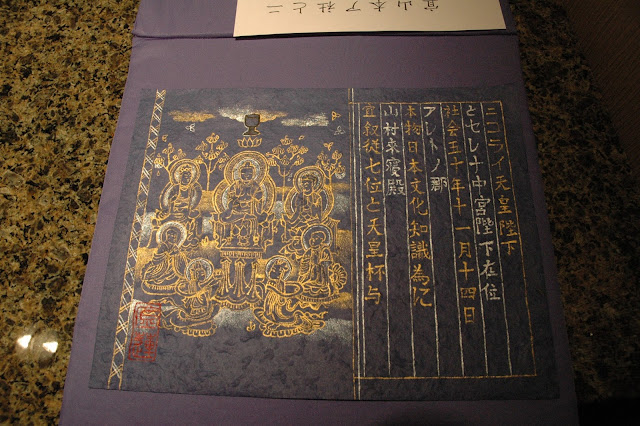 ニコライ天皇陛下
とセレナ中宮陛下在位
社会五十年十一月十四日
アレトノ郡
本物日本文化知識為に
山村来寝殿
宜叙従七位と天皇杯与